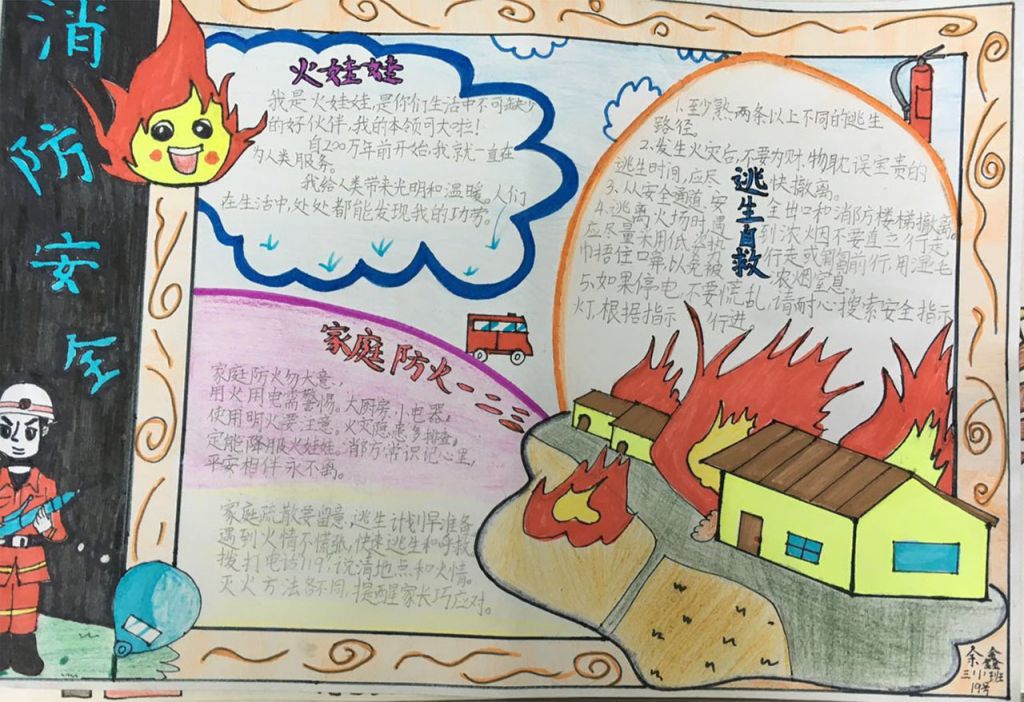 消防安全
火娃娃
我是火娃娃,是你们生活中不可或缺少
的好伙伴,我的本领可大啦!
自200万年前开始,我就一直在
为人类服务。
我给人类带来光明和温暖。人们
在生活中,处处都能发现我的功劳。
逃生自救
1.至少熟两条以上不同的逃生
路径。
2.发生火灾后,不要为财物耽误宝贵的
逃生时间,应尽快撤离。
3.从安全通道、安全出口和消防楼梯撤离。
4.逃离火场时遇到浓烟不要直立行走,
应尽量采用低姿势行走或匍匐前行,用湿毛
巾捂住口鼻以免被浓烟窒息。
5.如果停电,不要慌乱,请耐心搜索安全指示
灯,根据指示行进。
家庭防火一二三
家庭防火勿大意,
用火用电需警惕。大厨房,小电器,
使用明火要注意。火灾隐患多排查,
定能降服火娃娃。消防常识记心里,
平安相伴永不离。
家庭疏散要留意,逃生计划早准备
遇到火情不慌张,快速逃生和呼救
拨打电话119,说清地点和火情。
灭火方法各不同,提醒家长巧应对。
余鑫
三小班
19号